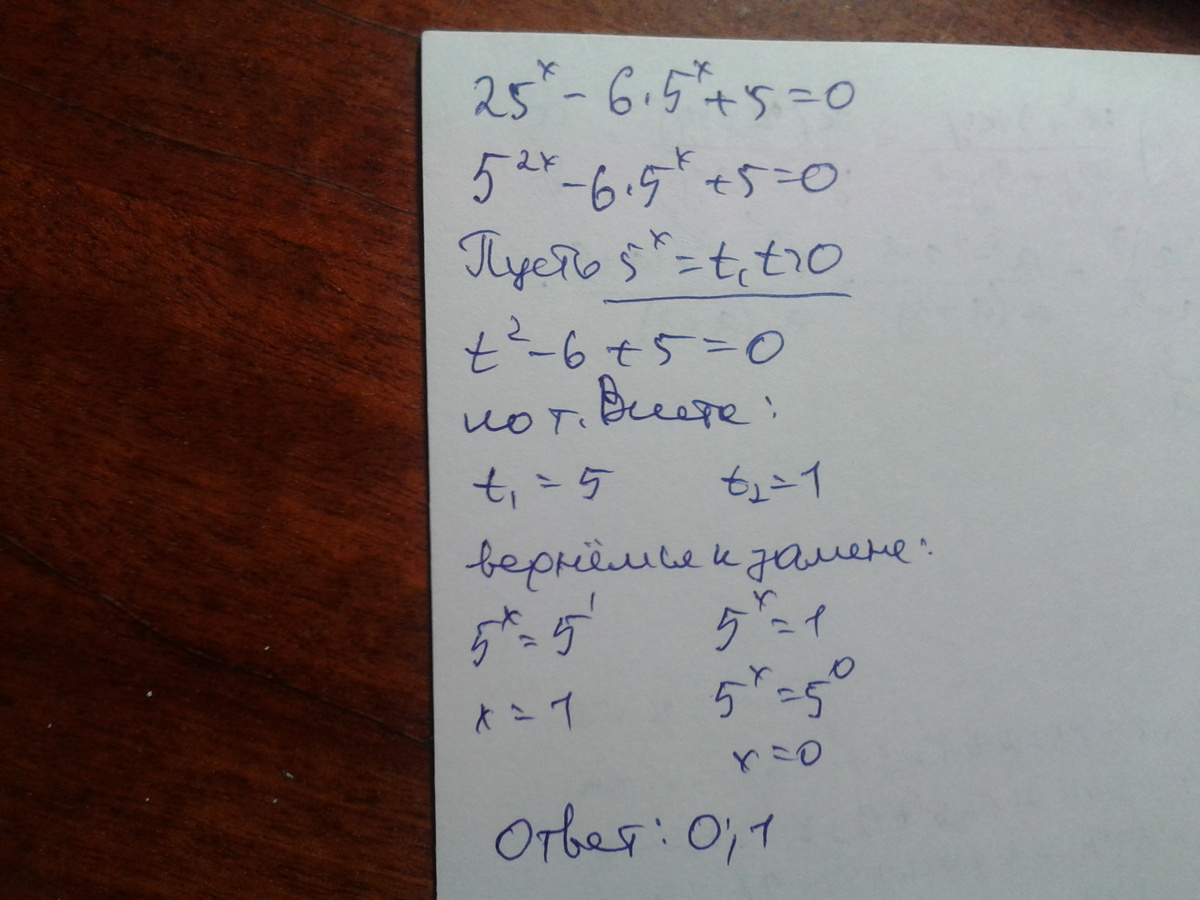 25ˣ - 6·5ˣ + 5 = 0
5²ˣ - 6·5ˣ + 5 = 0
Пусть 5ˣ = t, t > 0
t² - 6 + 5 = 0
по т. Виета:
t₁ = 5 t₂ = 1
вернёмся к замене:
5ˣ = 5¹ 5ˣ = 1
x = 1 5ˣ = 5⁰
x = 0
Ответ: 0; 1